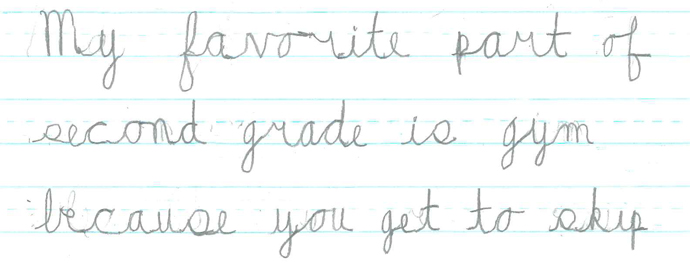 My favorite part of
second grade is gym
because you get to skip